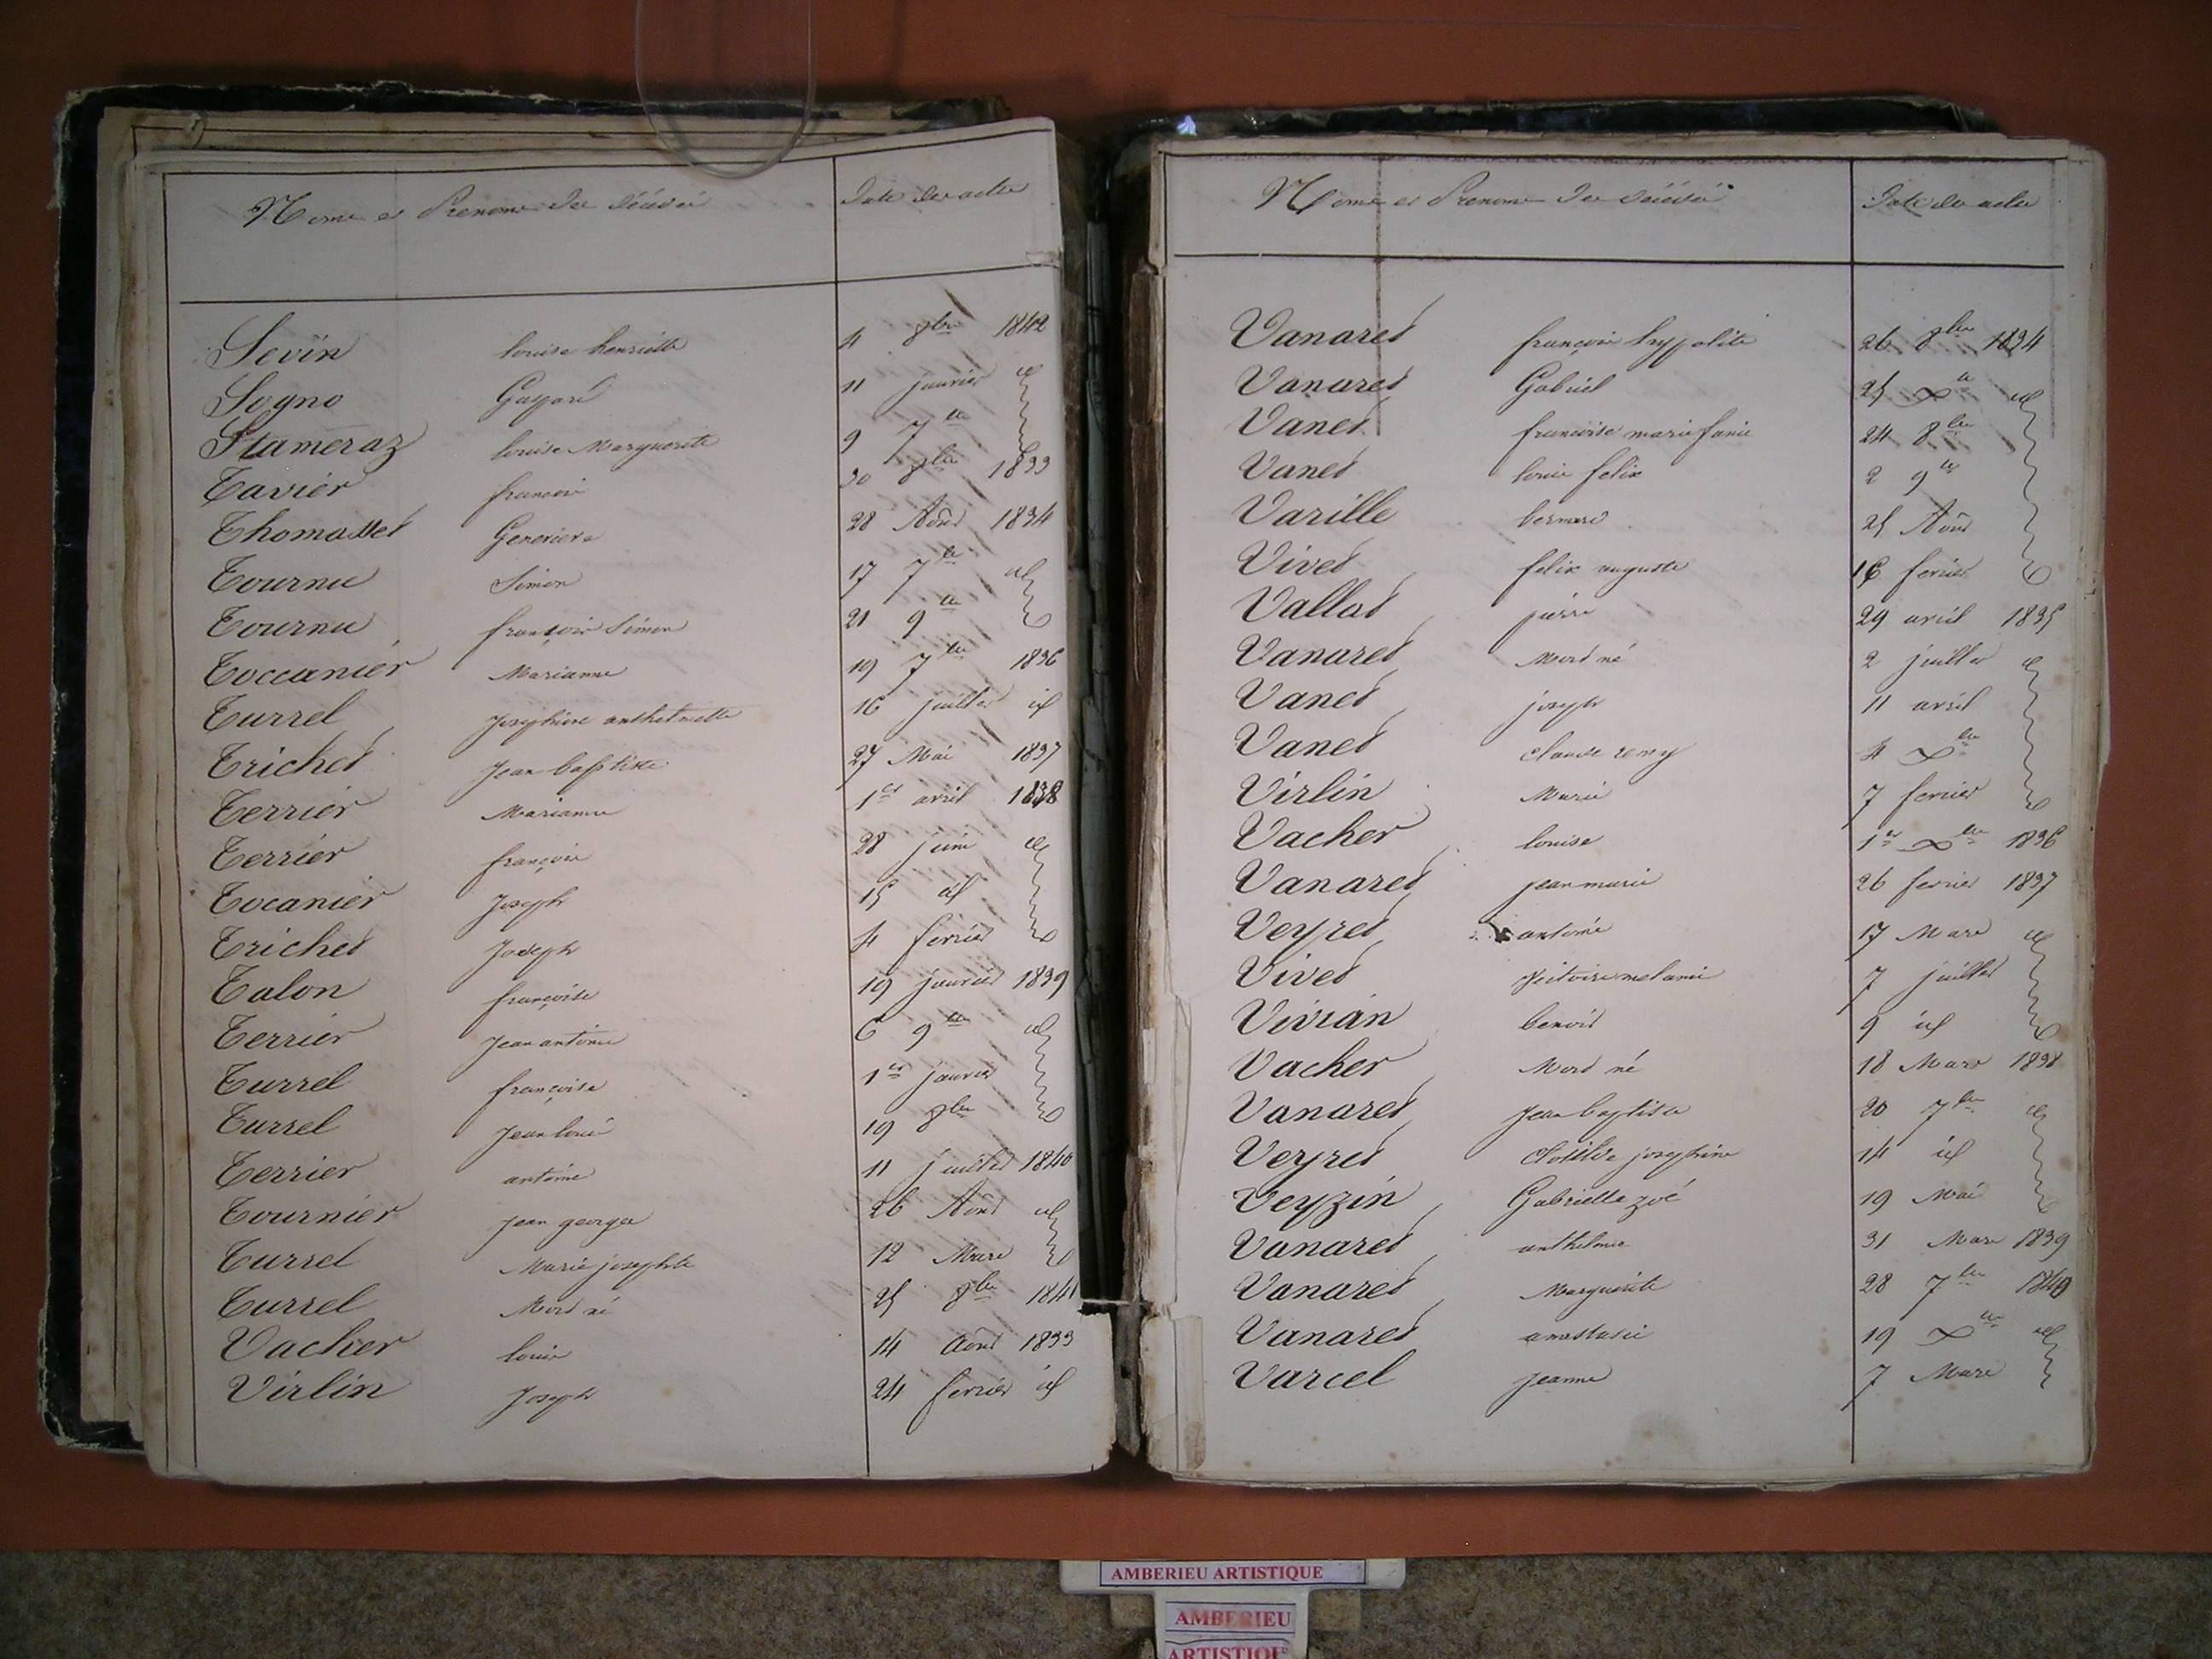 Noms et Prenoms des décédés Date des actes
Sevin louise henriette 4 8bre 1842
Sogno Gaspard 11 janvier id
Stameraz louise Marguerite 9 7bre
Tavier francois 30 8bre 1833
Thomasset Genevieve 28 Août 1834
Tournu Simon 17 7bre id
Tournu françois Simon 21 9bre
Toccanier Marianne 19 7bre 1836
Turrel Josephine anthelmette 16 juillet id
Trichet Jean baptiste 27 Mai 1837
Terrier Marianne 1er avril 1838
Terrier françois 28 juin id
Tocanier Joseph 15 id
Trichet Joseph 4 fevrier
Talon françoise 19 janvier 1839
Terrier Jean antoine 6 9bre id
Turrel françoise 1er janvier
Turrel Jean louis 19 8bre
Terrier antoine 11 juillet 1840
Tournier jean george 26 Août id
Turrel Marie josephte 12 Mars
Turrel Mort né 25 8bre 1841
Vacher louis 14 Août 1833
Virlin Joseph 24 fevrier id
Noms et Prenoms des décédés Date des actes
Vanaret françois hypolite 26 8bre 1834
Vanaret Gabriel 25 Xbre id
Vanet francoise marie fanie 24 8bre
Vanet louis felix 2 9bre
Varille bernard 25 Août
Vivet felix auguste 16 fevrier
Vallat pierre 29 avril 1835
Vanaret Mort né 2 juillet id
Vanet joseph 11 avril
Vanet Claude remy 4 Xbre
Virlin Marie 7 fevrier
Vacher louise 1er Xbre 1836
Vanaret jean marie 26 fevrier 1837
Veyret antoine 17 Mars id
Vivet victoire melanie 7 juillet
Vivian benoit 9 id
Vacher Mort né 18 Mars 1838
Vanaret Jean baptiste 20 7bre id
Veyret Clotilde josephine 14 id
Veyzin Gabrielle zoé 19 Mai
Vanaret anthelme 31 Mars 1839
Vanaret Marguerite 28 7bre 1840
Vanaret anastasie 19 Xbre id
Varcel jeanne 7 Mars
AMBERIEU ARTISTIQUE
AMBERIEU
ARTISTIQUE